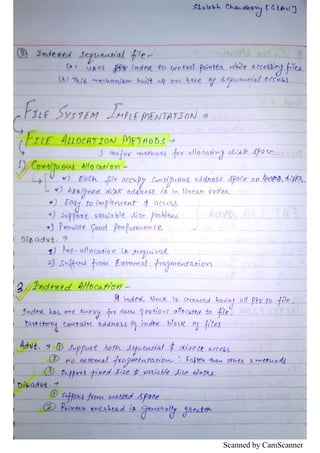 Shobhit Choudhary [GLAU]
③ Indexed Sequential file -
(A) uses index to control pointer while accessing files
(A) This mechanism built up on base of sequential access
FILE SYSTEM IMPLEMENTATION →
FILE ALLOCATION METHODS →
3 major methods for allocating disk space
1) Contiguous Allocation -
*) Each file occupy Contiguous address space on disks.
*) Assigned disk address is in linear order
*) Easy to implement & access
*) Support variable size problem
*) Provide Good Performance
Disadvt. →
1) Pre-allocation is required
2) Suffers from External fragmentation
2. Indexed Allocation -
A index block is created having all ptr to file.
Index has one entry for each portion allocated to file.
Directory contain address of index block of files
Advt. → ① Support both sequential & direct access
② No external fragmentation : Faster than other 2 methods
③ Support fixed size & variable size blocks.
Disadvt. →
① Suffers from wasted space
② Pointer overhead is generally greater
Scanned by CamScanner